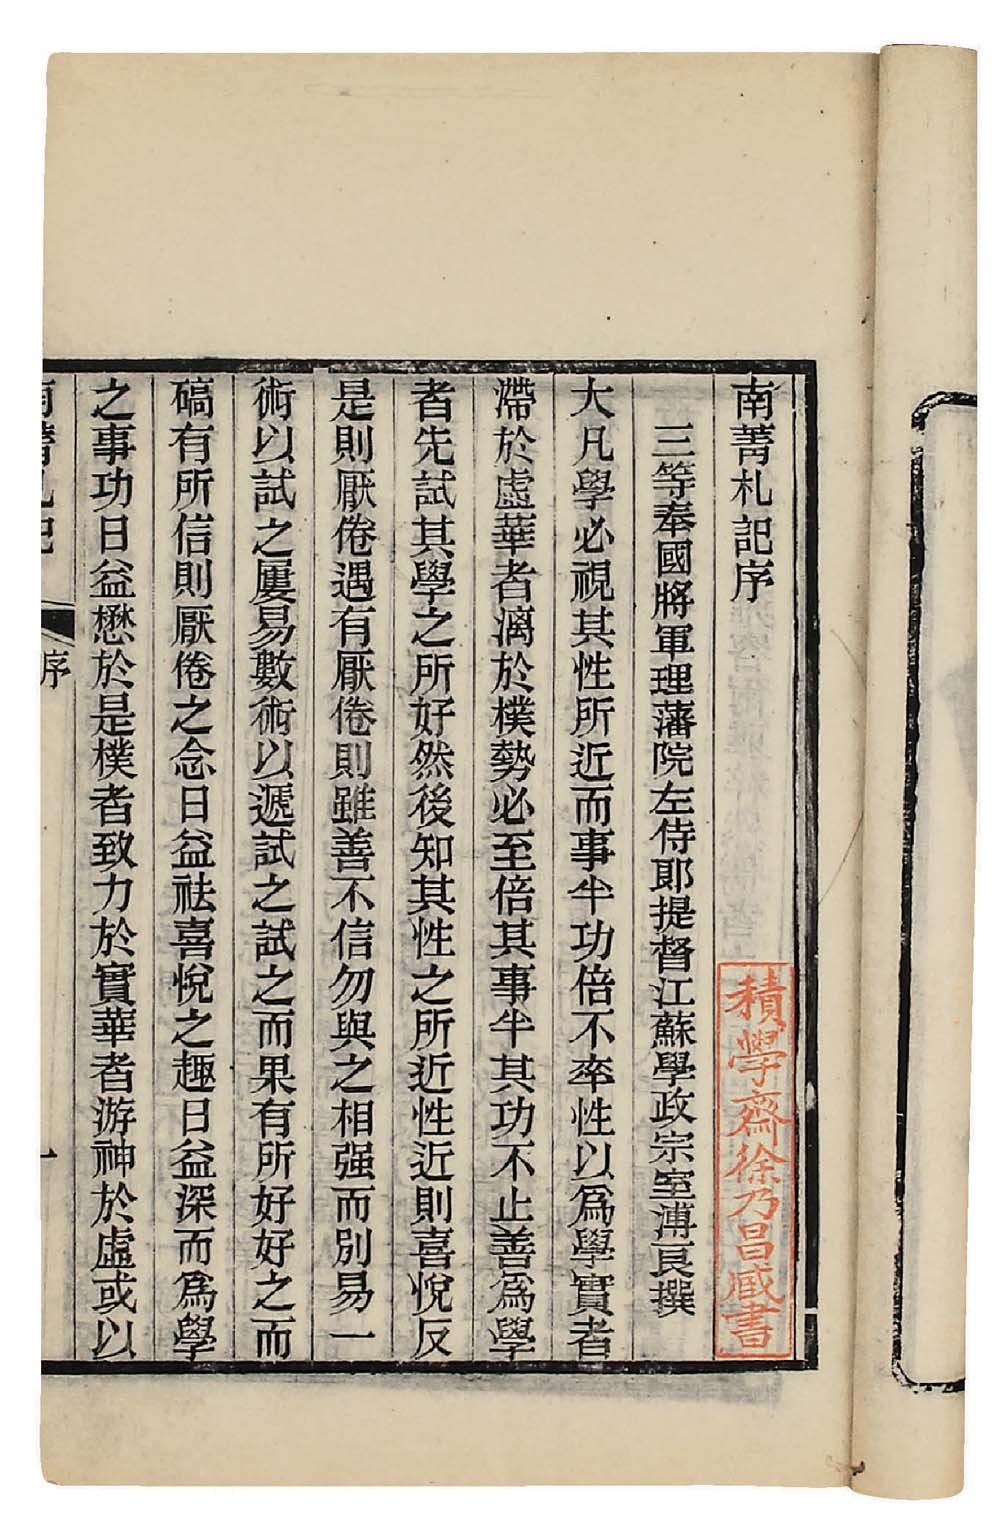 南菁札記序
積學齋徐乃昌臧書
三等奉國將軍理藩院左侍郎提督江蘇學政宗室溥良撰
大凡學必視其性所近而事半功倍不率性以爲學實者
滯於虛華者漓於樸勢必至倍其事半其功不止善爲學
者先試其學之所好然後知其性之所近性近則喜悅反
是則厭倦遇有厭倦則雖善不信勿與之相强而別易一
術以試之屢易數術以遞試之試之而果有所好好之而
碻有所信則厭倦之念日益祛喜悅之趣日益深而爲學
之事功日益懋於是樸者致力於實華者游神於虛或以
南菁札記
序
一